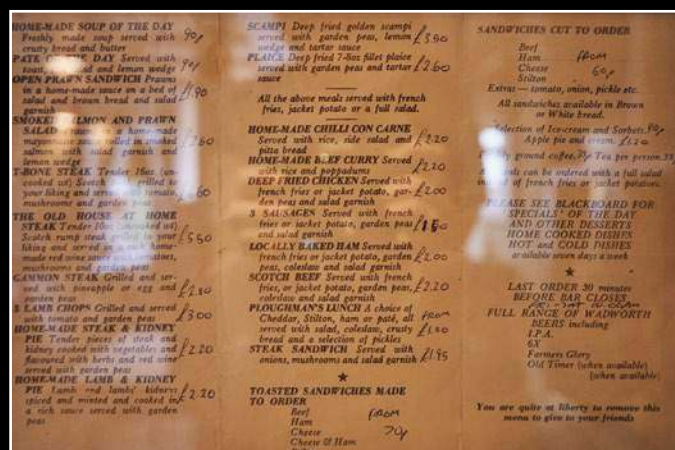 HOME-MADE SOUP OF THE DAY
Freshly made soup served with 90p
crusty bread and butter
PATE OF THE DAY Served with
toast, and lemon wedge 90p
OPEN PRAWN SANDWICH Prawns
in a home-made sauce on a bed of
salad and brown bread and salad £1.90
garnish
SMOKED SALMON AND PRAWN
SALAD in a home-made
mayonnaise rolled in smoked
salmon with salad garnish and
lemon wedge
T-BONE STEAK Tender 16oz (un-
cooked wt) Scotch grilled to
your liking and served tomato,
mushrooms and garden peas
THE OLD HOUSE AT HOME
STEAK Tender 10oz (uncooked wt)
Scotch rump steak grilled to your £5.50
liking and served in a home-
made red wine sauce with tomatoes,
mushrooms and garden peas
GAMMON STEAK Grilled and ser-
ved with pineapple or egg and
garden peas
3 LAMB CHOPS Grilled and served £3.00
with tomato and garden peas
HOME-MADE STEAK & KIDNEY
PIE Tender pieces of steak and
kidney cooked with vegetables and £2.20
flavoured with herbs and red wine
served with garden peas
HOME-MADE LAMB & KIDNEY
PIE Lamb and lambs' kidneys
spiced and minted and cooked in £2.20
a rich sauce served with garden
peas
SCAMPI Deep fried golden scampi
served with garden peas, lemon £3.50
wedge and tartar sauce
PLAICE Deep fried 7-8oz fillet plaice
served with garden peas and tartar £2.60
sauce
All the above meals served with french
fries, jacket potato or a full salad.
HOME-MADE CHILLI CON CARNE
Served with rice, side salad and £2.20
pitta bread
HOME-MADE BEEF CURRY Served £2.20
with rice and poppadums
DEEP FRIED CHICKEN Served with
french fries or jacket potato, gar- £2.00
den peas and salad garnish
3 SAUSAGES Served with french
fries or jacket potato, garden peas £1.50
and salad garnish
LOCALLY BAKED HAM Served with
french fries or jacket potato, garden £2.00
peas, coleslaw and salad garnish
SCOTCH BEEF Served with french
fries, or jacket potato, garden peas, £2.20
coleslaw and salad garnish
PLOUGHMAN'S LUNCH A choice of
Cheddar, Stilton, ham or paté, all FROM
served with salad, coleslaw, crusty
bread and a selection of pickles
STEAK SANDWICH Served with
onions, mushrooms and salad garnish £1.95
TOASTED SANDWICHES MADE
TO ORDER
Beef FROM
Ham
Cheese 70p
Cheese & Ham
SANDWICHES CUT TO ORDER
Beef
Ham FROM
Cheese 60p
Stilton
Extras — tomato, onion, pickle etc.
All sandwiches available in Brown
or White bread.
Selection of Ice-cream and Sorbets 90p
Apple pie and cream. £1.20
ground coffee, Tea per person
can be ordered with a full salad
instead of french fries or jacket potatoes.
PLEASE SEE BLACKBOARD FOR
'SPECIALS' OF THE DAY
AND OTHER DESSERTS
HOME COOKED DISHES
HOT and COLD DISHES
available seven days a week
LAST ORDER 30 minutes
BEFORE BAR CLOSES
FULL RANGE OF WADWORTH
BEERS including
I.P.A.
6X
Farmers Glory
Old Timer (when available)
(when available)
You are quite at liberty to remove this
menu to give to your friends